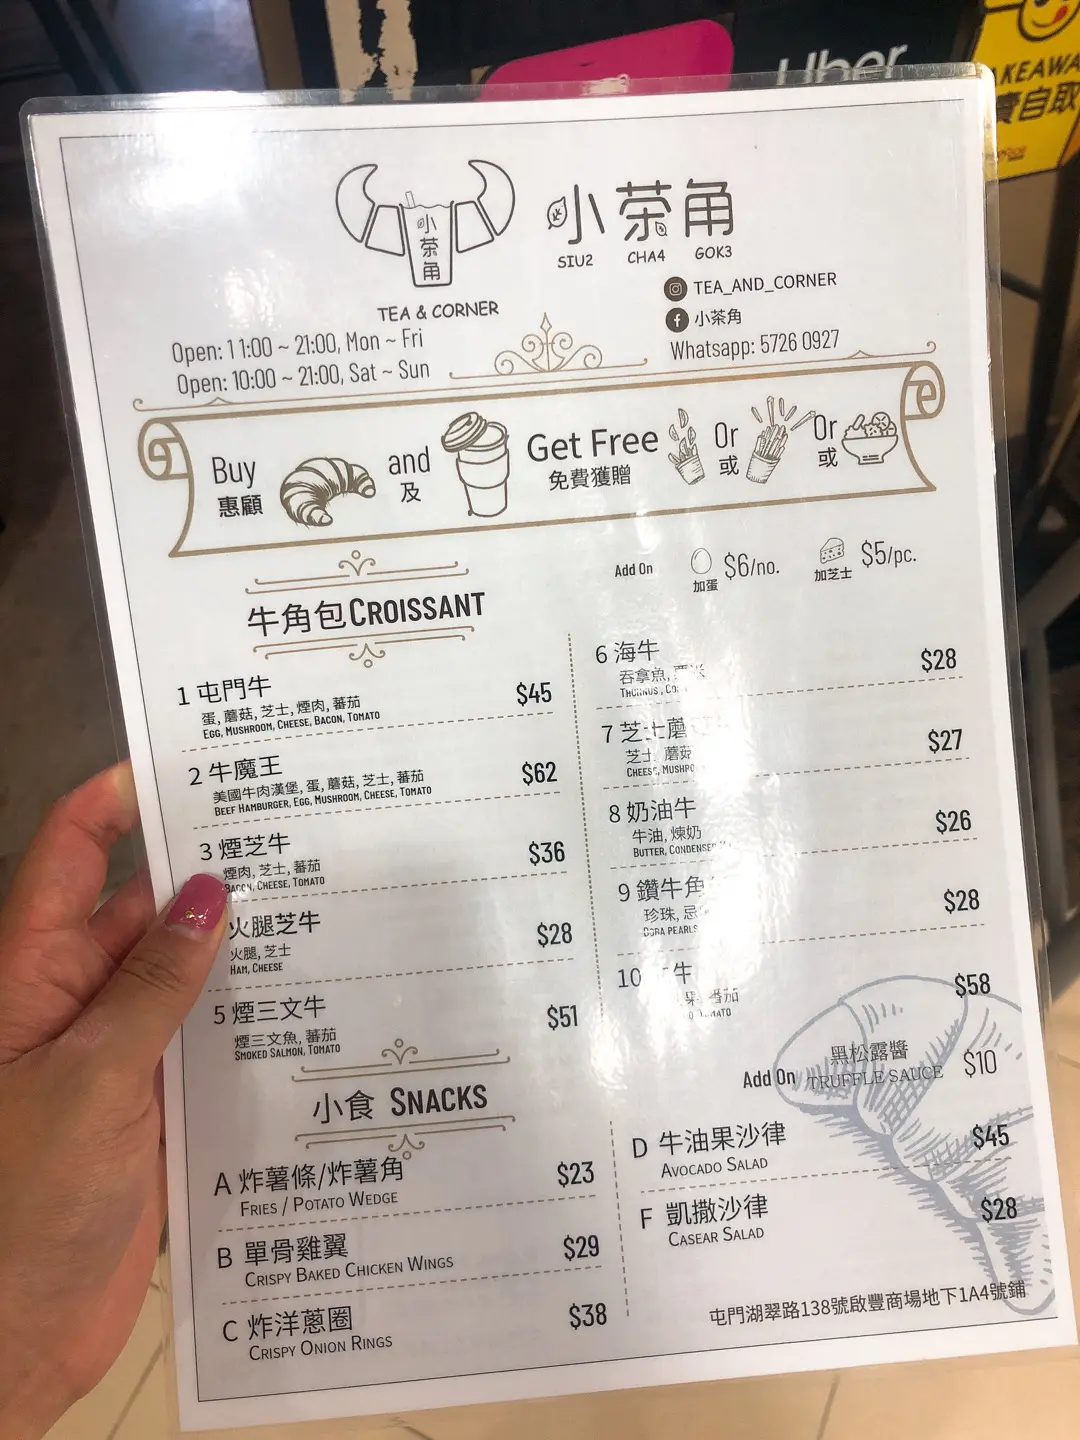 Uber
KEAWA
自取
小茶角
小茶角
SIU2 CHA4 GOK3
TEA & CORNER
TEA_AND_CORNER
小茶角
Whatsapp: 5726 0927
Open: 11:00 ~ 21:00, Mon ~ Fri
Open: 10:00 ~ 21:00, Sat ~ Sun
Buy and Get Free Or Or
惠顧 及 免費獲贈 或 或
Add On $6/no. $5/pc.
加蛋 加芝士
牛角包 CROISSANT
1 屯門牛 $45
蛋, 蘑菇, 芝士, 煙肉, 蕃茄
EGG, MUSHROOM, CHEESE, BACON, TOMATO
2 牛魔王 $62
美國牛肉漢堡, 蛋, 蘑菇, 芝士, 蕃茄
BEEF HAMBURGER, EGG, MUSHROOM, CHEESE, TOMATO
3 煙芝牛 $36
煙肉, 芝士, 蕃茄
BACON, CHEESE, TOMATO
火腿芝牛 $28
火腿, 芝士
HAM, CHEESE
5 煙三文牛 $51
煙三文魚, 蕃茄
SMOKED SALMON, TOMATO
6 海牛 $28
吞拿魚, 粟米
THUNNUS
7 芝士蘑 $27
芝士 蘑菇
CHEESE
8 奶油牛 $26
牛油, 煉奶
BUTTER
9 鑽牛角 $28
珍珠
PEARLS
10 牛 $58
蕃茄
Add On 黑松露醬 $10
TRUFFLE SAUCE
小食 SNACKS
A 炸薯條/炸薯角 $23
FRIES / POTATO WEDGE
B 單骨雞翼 $29
CRISPY BAKED CHICKEN WINGS
C 炸洋蔥圈 $38
CRISPY ONION RINGS
D 牛油果沙律 $45
AVOCADO SALAD
F 凱撒沙律 $28
CASEAR SALAD
屯門湖翠路138號啟豐商場地下1A4號鋪